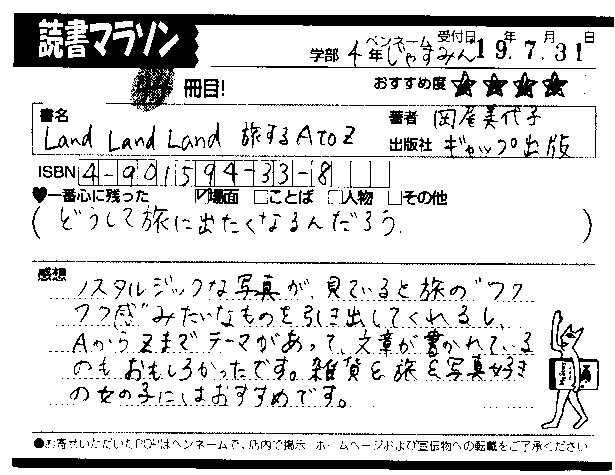 読書マラソン
学部 4年 ペンネーム じゃすみん 受付日 19年7月31日
冊目! おすすめ度 ★★★★
書名 Land Land Land 旅するAtoZ
著者 岡尾美代子
出版社 ギャップ出版
ISBN 4-901594-33-8
♥一番心に残った ☑場面 □ことば □人物 □その他
(どうして旅に出たくなるんだろう.)
感想
ノスタルジックな写真が、見ていると旅の"ワク
ワク感"みたいなものを引き出してくれるし、
AからZまでテーマがあって、文章が書かれている
のもおもしろかったです。雑貨&旅&写真好き
の女の子にはおすすめです。
●お寄せいただいたPOPはペンネームで、店内で掲示・ホームページおよび宣伝物への転載をご了承ください